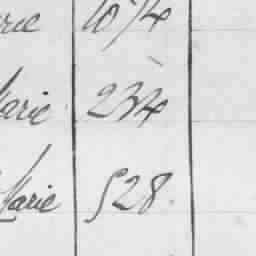 rie 1074
Marie 234
Marie 528.